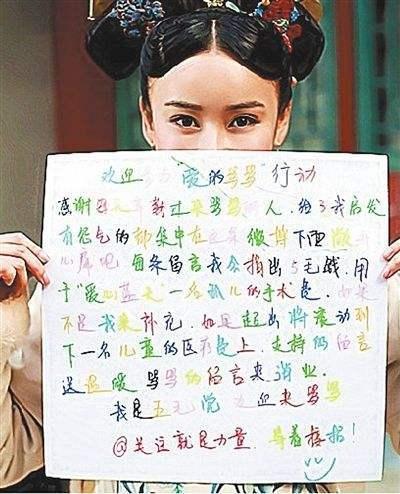 欢迎 "爱的骂骂"行动
感谢 来骂骂的人.给了我启发
有怨气的都集中在这条微博下面
儿 吧 每条留言我会捐出5毛钱.用
于"爱心蓝天"一名孤儿的手术费.如果
不足我来补充.如是超出将滚动到
下一名儿童的医疗费上.支持的留言
送温暖 骂骂的留言来消业.
我是五毛党 欢迎来骂骂
@关注就是力量.等着捐